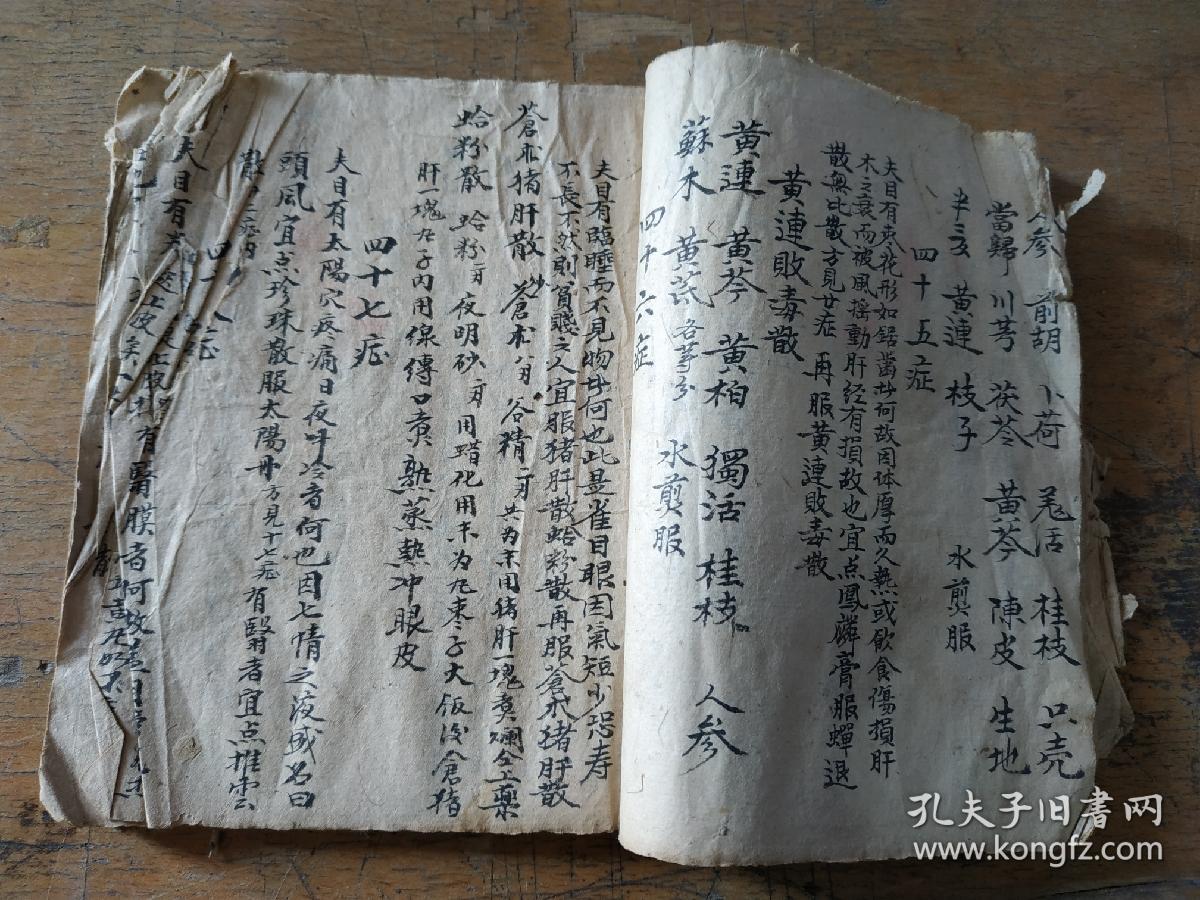 人参 前胡 卜荷 羌活 桂枝 只壳
當歸 川芎 茯苓 黄芩 陳皮 生地
半夏 黄連 枝子 水煎服
四十五症
夫目有枣花形如鋸齒者何故因体厚而久熱或飲食傷損肝
木之衰而被風搖動肝经有損故也宜点鳳麟膏服蟬退
散無比散方見廿症 再服黄連敗毒散
黄連敗毒散
黄連 黄芩 黄柏 獨活 桂枝 人参
蘇木 黄芪 各等分 水煎服
四十六症
夫目有臨睡而不見物者何也此是雀目眼因氣短少恐寿
不長不然則貧賤之人宜服猪肝散蛤粉散再服蒼朮猪肝散
蒼朮猪肝散 炒蒼朮八 谷精 共为末用猪肝一塊煮爛仝藥
蛤粉散 蛤粉 夜明砂 用蜡化用末为丸枣子大飯後倉猪
肝一塊丸子内用線縛口煮熟蒸熱冲眼皮
四十七症
夫目有太陽穴疼痛日夜呌冷者何也因七情之 名曰
頭風宜点珍珠散服太陽丹方見十七症 有翳者宜点推雲
散
四十八症
夫目有
有翳膜者何故
孔夫子旧书网
www.kongfz.com